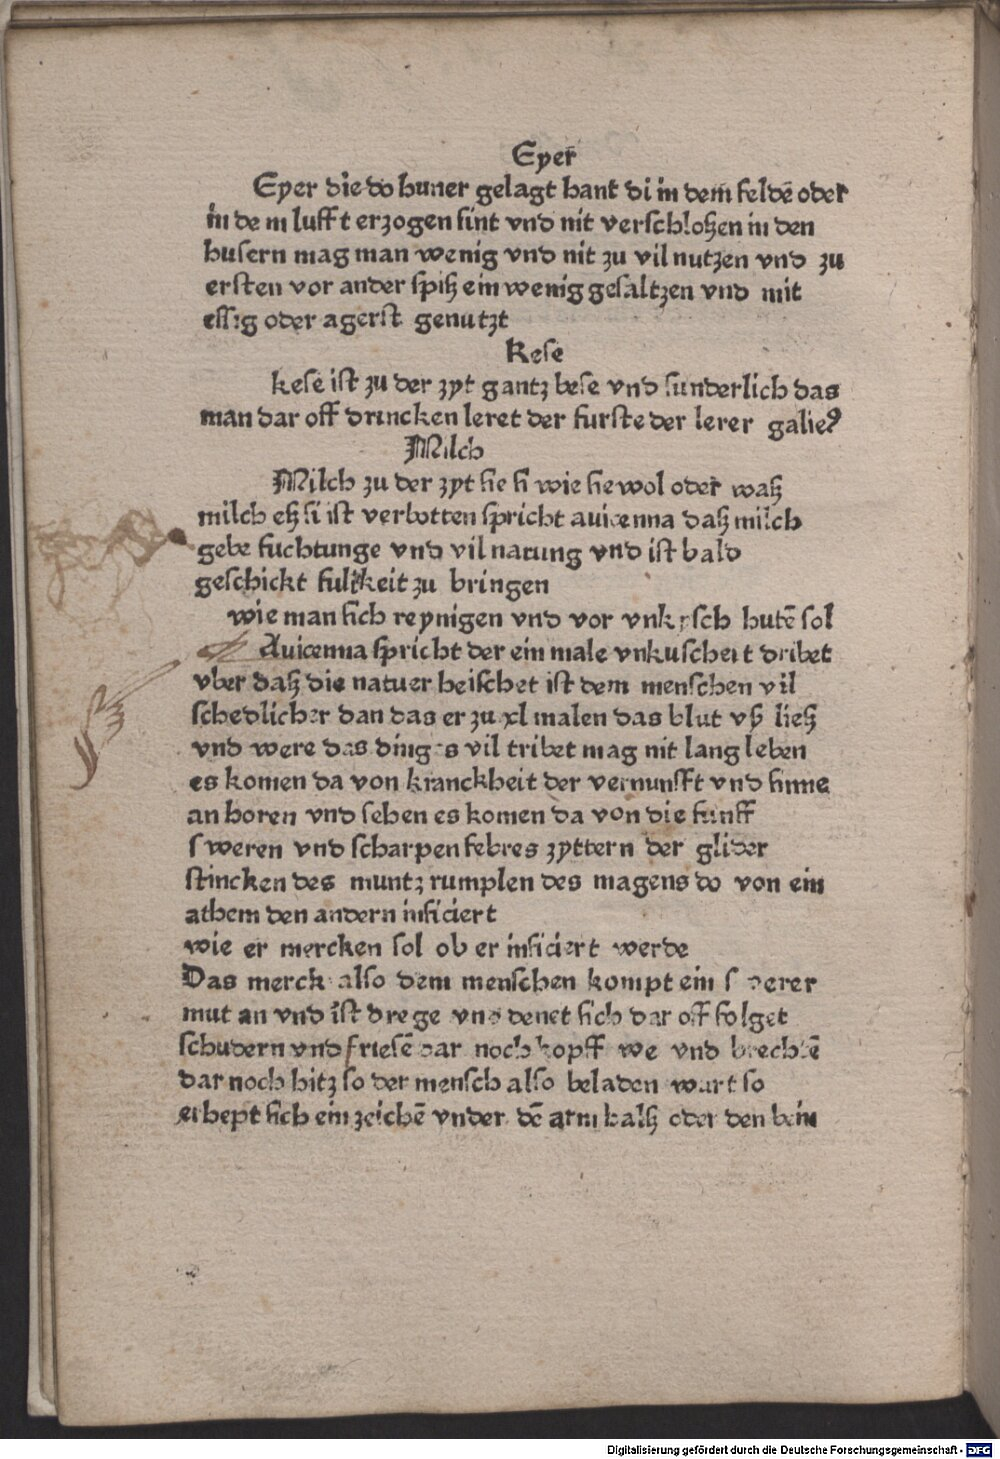 Eyer
Eyer die do huner gelagt hant di in dem feldē oder
in de m lufft erzogen sint vnd nit verschloßen in den
husern mag man wenig vnd nit zu vil nutzen vnd zu
ersten vor ander spiß ein wenig gesaltzen vnd mit
essig oder agerst genutzt
Kese
kese ist zu der zyt gantz bese vnd sunderlich das
man dar off drincken leret der furste der lerer galieꝰ
Milch
Milch zu der zyt sie si wie sie wol oder waß
milch eß si ist verbotten spricht auicenna daß milch
gebe fuchtunge vnd vil narung vnd ist bald
geschickt fulikeit zu bringen
wie man sich reynigen vnd vor vnkysch hutē sol
Auicenna spricht der ein male vnkuscheit dribet
vber daß die natuer heischet ist dem menschen vil
schedlicher dan das er zu xl malen das blut vß ließ
vnd were das dinges vil tribet mag nit lang leben
es komen da von kranckheit der vernunfft vnd sinne
an horen vnd sehen es komen da von die funff
sweren vnd scharpen febres zyttern der glider
stincken des muntz rumplen des magens do von ein
athem den andern inficiert
wie er mercken sol ob er inficiert werde
Das merck also dem menschen kompt ein swerer
mut an vnd ist drege vnd denet sich dar off folget
schudern vnd friesē dar noch kopff we vnd brechē
dar noch hitz so der mensch also beladen wart so
erhept sich ein zeichē vnder dē arm halß oder den bein
Digitalisierung gefördert durch die Deutsche Forschungsgemeinschaft - DFG